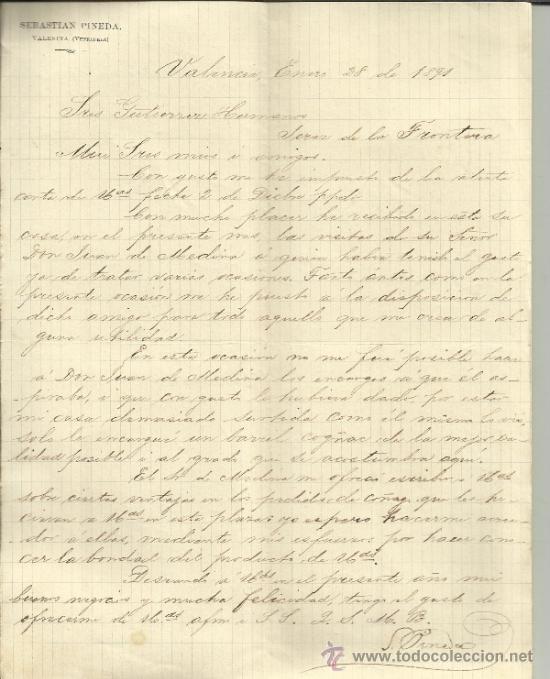 SEBASTIAN PINEDA,
VALENCIA (VENEZUELA)
Valencia, Enero 28 de 1891
Sres Gutierrez Hermanos
Jerez de la Frontera
Mui Sres mios i amigos.
Con gusto me he impuesto de la atenta
carta de Uds fecha 2 de Dicbre ppdo.
Con mucho placer he recibido en esta su
casa, en el presente mes, las visitas de su Señor
Don Juan de Medina a quien habia tenido el gusto
ya de tratar varias ocasiones. Tanto ántes como en la
presente ocasion me he puesto á la disposicion de
dicho amigo para todo aquello que me crea de al-
guna utilidad.
En esta ocasion no me fué posible hacer
á Don Juan de Medina los encargos á que él as-
piraba, i que con gusto le hubiera dado, por estar
mi casa demasiado surtida como él mismo lo vió,
solo le encargué un barril cognac de la mejor ca-
lidad posible i al grado que se acostumbra aquí.
El Sr. de Medina me ofreció escribir á Uds
sobre ciertas ventajas en los pedidos de coñac que les hi-
cieran á Uds en esta plaza i yo espero hacerme acree-
dor á ellas, mediante mis esfuerzos por hacer cono-
cer la bondad del producto de Uds.
Deseando á Uds en el presente año mui
buenos negocios y mucha felicidad, tengo el gusto de
ofrecerme de Uds afmo i S. S. Q. S. M. B.
S. Pineda
www.todocoleccion.net